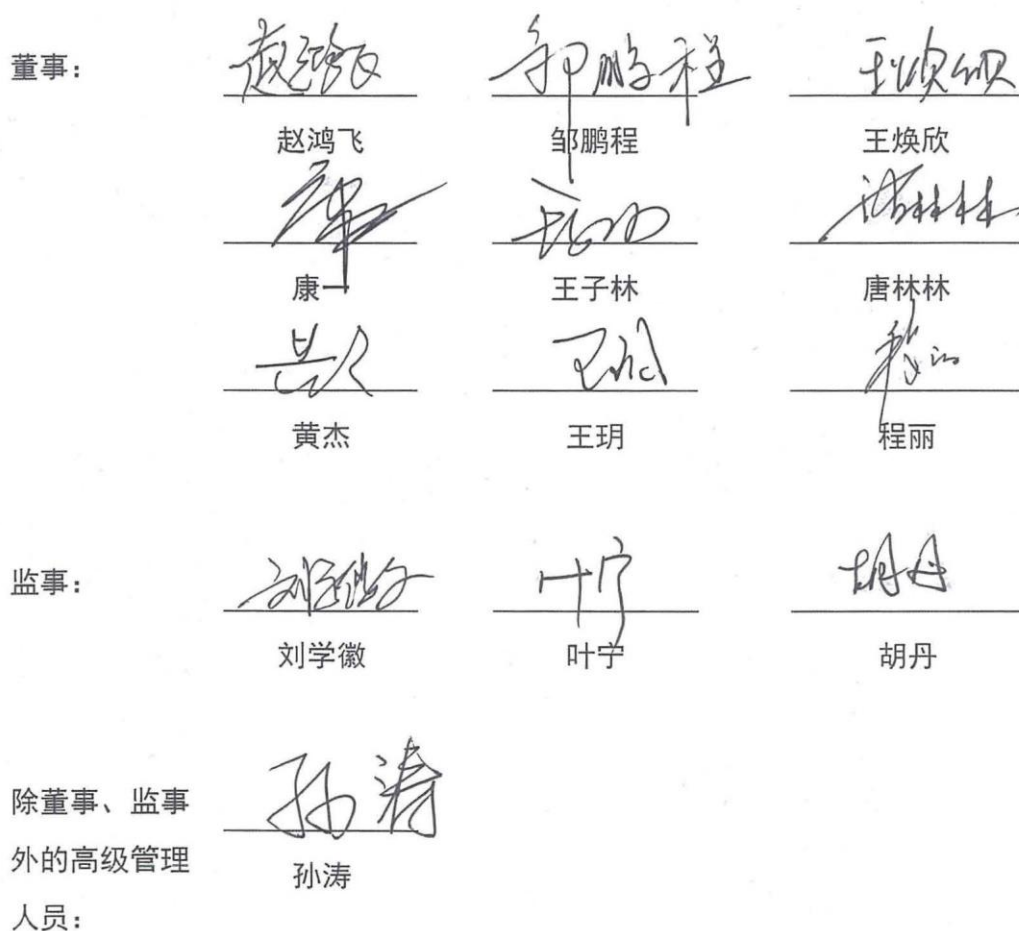 董事：
赵鸿飞 邹鹏程 王焕欣
康一 王子林 唐林林
黄杰 王玥 程丽
监事：
叶宁 胡丹
刘学徽 叶宁 胡丹
孙涛
除董事、监事
外的高级管理
孙涛
人员：